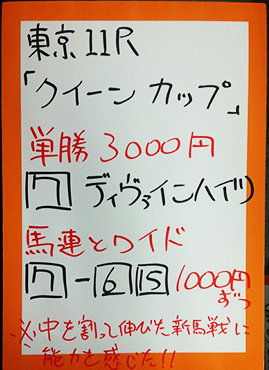 東京11R
「クイーン カップ」
単勝3000円
7 ディヴァインハイツ
馬連とワイド
7-6 15 1000円
ずつ
※中を割って伸びた新馬戦に
能力を感じた!!